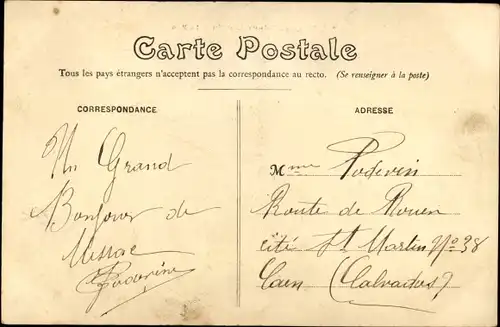 Carte Postale
Tous les pays étrangers n'acceptent pas la correspondance au recto. (Se renseigner à la poste)
CORRESPONDANCE
Un Grand
Bonjour de
ADRESSE
Mme Podevin
Route de Rouen
cité St Martin No 38
Caen (Calvados)